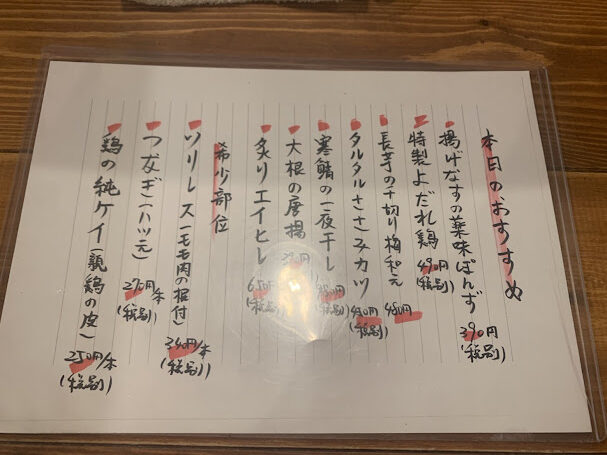 本日のおすすめ
揚げなすの薬味ぽんず 390円(税別)
特製よだれ鶏 490円(税別)
長芋の千切り梅和え 480円
タルタルささみカツ 450円(税別)
寒鯖の一夜干し 円(税別)
大根の唐揚 390円
炙りエイヒレ 650円(税別)
希少部位
ソリレス(モモ肉の根付) 340円/本(税別)
つなぎ(ハツ元) 270円/本(税別)
鶏の純ケイ(親鶏の皮) 250円/本(税別)